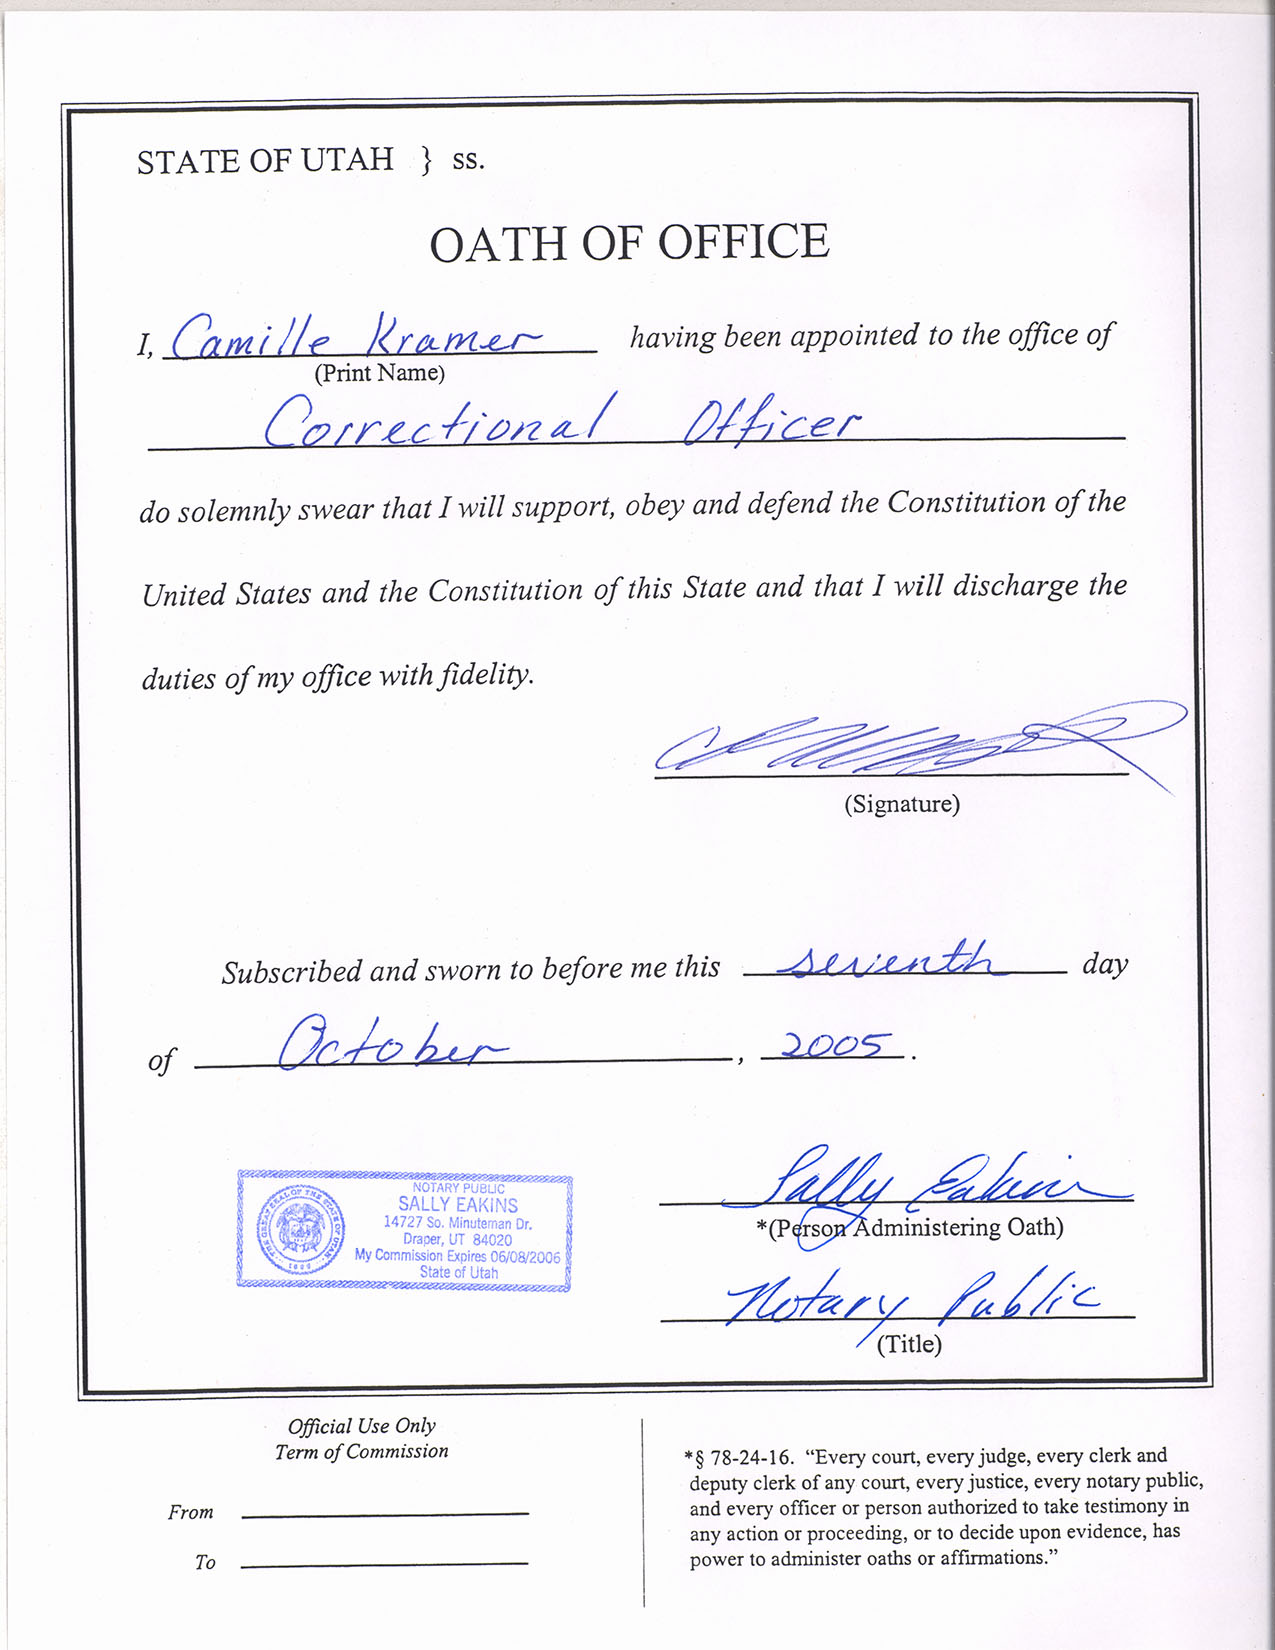 STATE OF UTAH } ss.
OATH OF OFFICE
I, Camille Kramer having been appointed to the office of
(Print Name)
Correctional Officer
do solemnly swear that I will support, obey and defend the Constitution of the
United States and the Constitution of this State and that I will discharge the
duties of my office with fidelity.
(Signature)
Subscribed and sworn to before me this seventh day
of October, 2005.
Sally Eakins
*(Person Administering Oath)
NOTARY PUBLIC
SALLY EAKINS
14727 So. Minuteman Dr.
Draper, UT 84020
My Commission Expires 06/08/2006
State of Utah
THE GREAT SEAL OF THE STATE OF UTAH
1896
Notary Public
(Title)
Official Use Only
Term of Commission
From
To
*§ 78-24-16. “Every court, every judge, every clerk and
deputy clerk of any court, every justice, every notary public,
and every officer or person authorized to take testimony in
any action or proceeding, or to decide upon evidence, has
power to administer oaths or affirmations.”